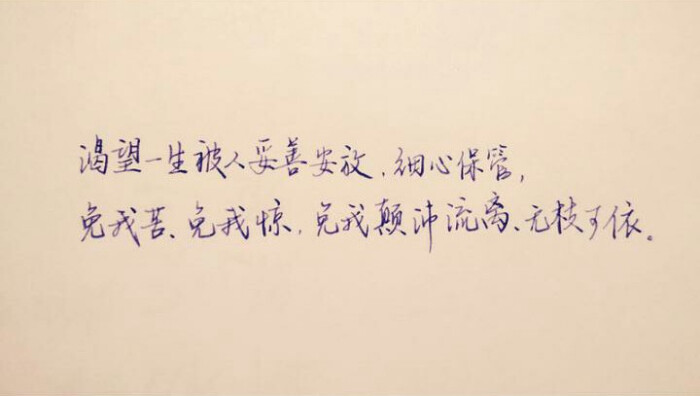 渴望一生被人妥善安放,细心保管,
免我苦、免我惊,免我颠沛流离、无枝可依。